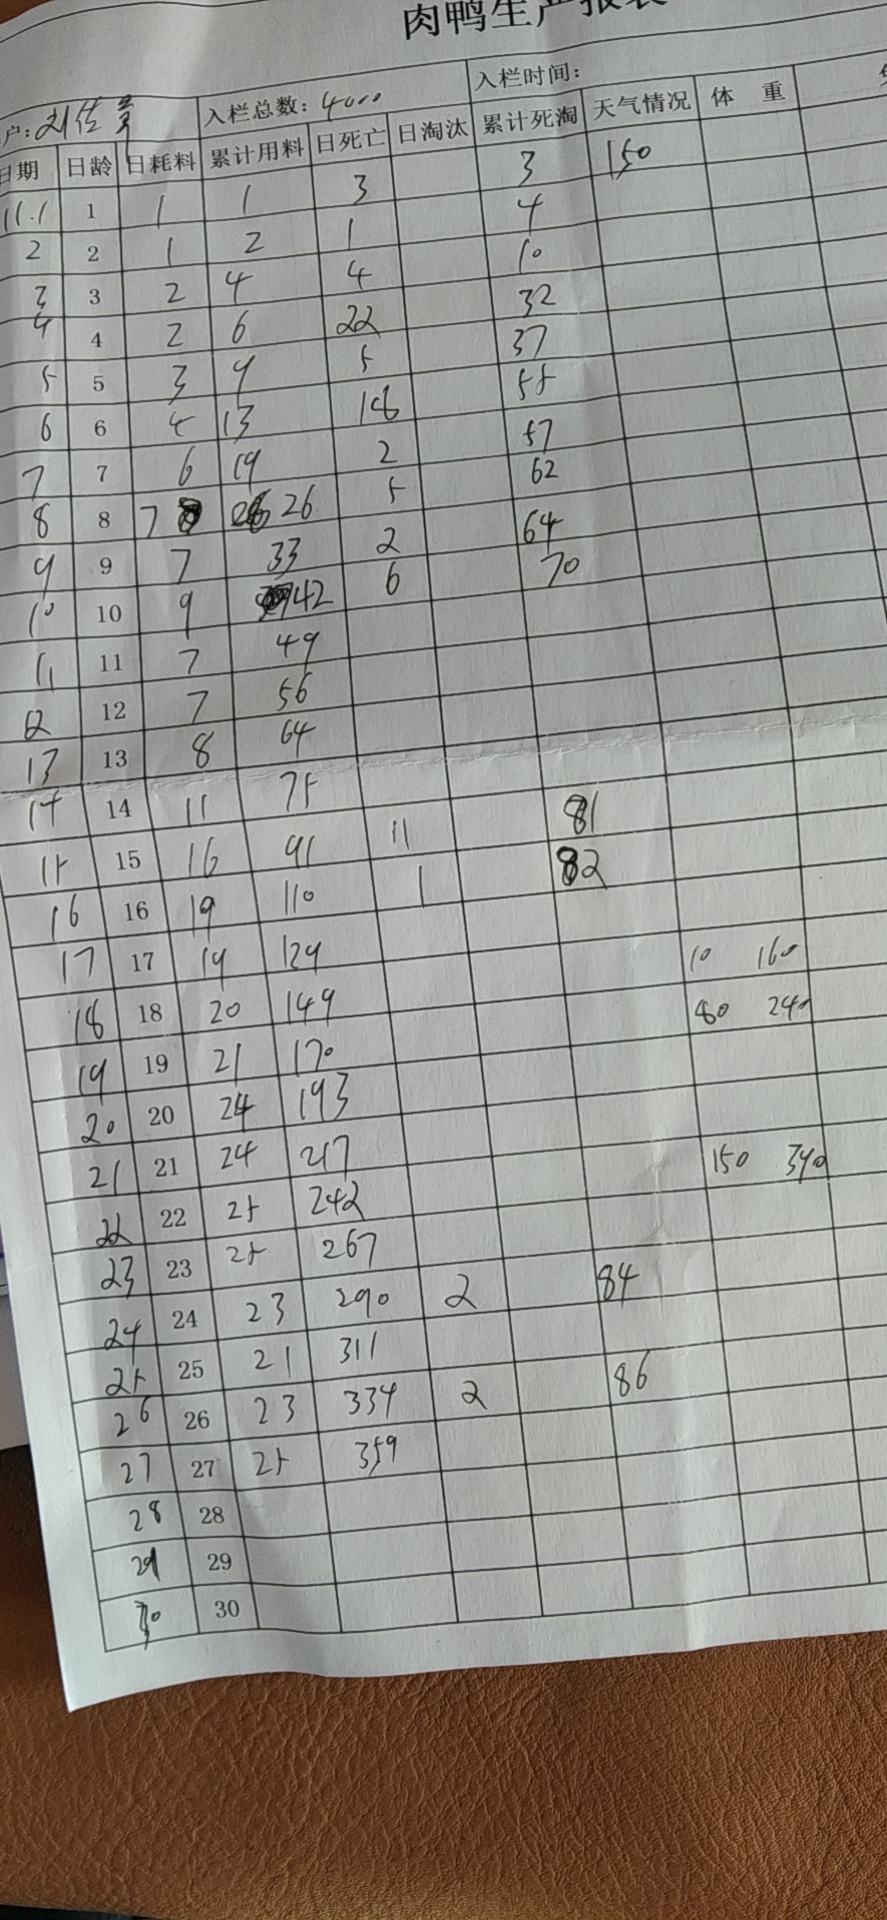 肉鸭生产报表
户: 刘佐 入栏总数: 4000 入栏时间:
日期 日龄 日耗料 累计用料 日死亡 日淘汰 累计死淘 天气情况 体 重
11.1 1 1 1 3 3 150
2 2 1 2 1 4
3 3 2 4 4 10
4 4 2 6 22 32
5 5 3 9 5 37
6 6 4 13 18 55
7 7 6 19 2 57
8 8 7 26 5 62
9 9 7 33 2 64
10 10 9 42 6 70
11 11 7 49
12 12 7 56
13 13 8 64
14 14 11 75
15 15 16 91 11 81
16 16 19 110 1 82
17 17 19 129 10 160
18 18 20 149 80 240
19 19 21 170
20 20 24 193
21 21 24 217 150 390
22 22 25 242
23 23 25 267
24 24 23 290 2 84
25 25 21 311
26 26 23 334 2 86
27 27 25 359
28 28
29 29
30 30